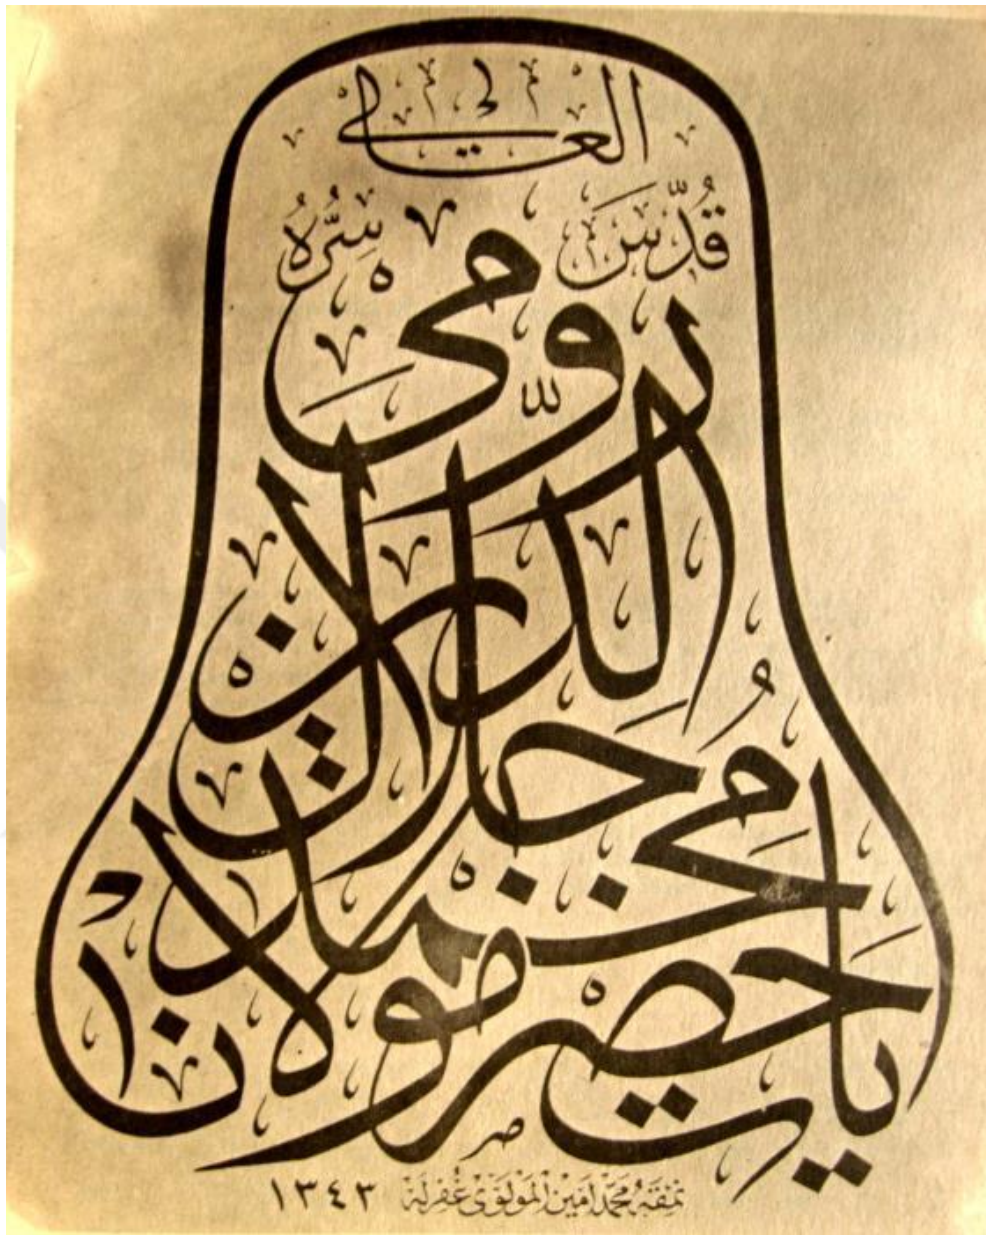 يا حضرت مولانا
محمد جلال الدين
رومي
قُدِّسَ سِرُّهُ
العالي
نمقه محمد امين المولوي غفر له ١٣٤٣